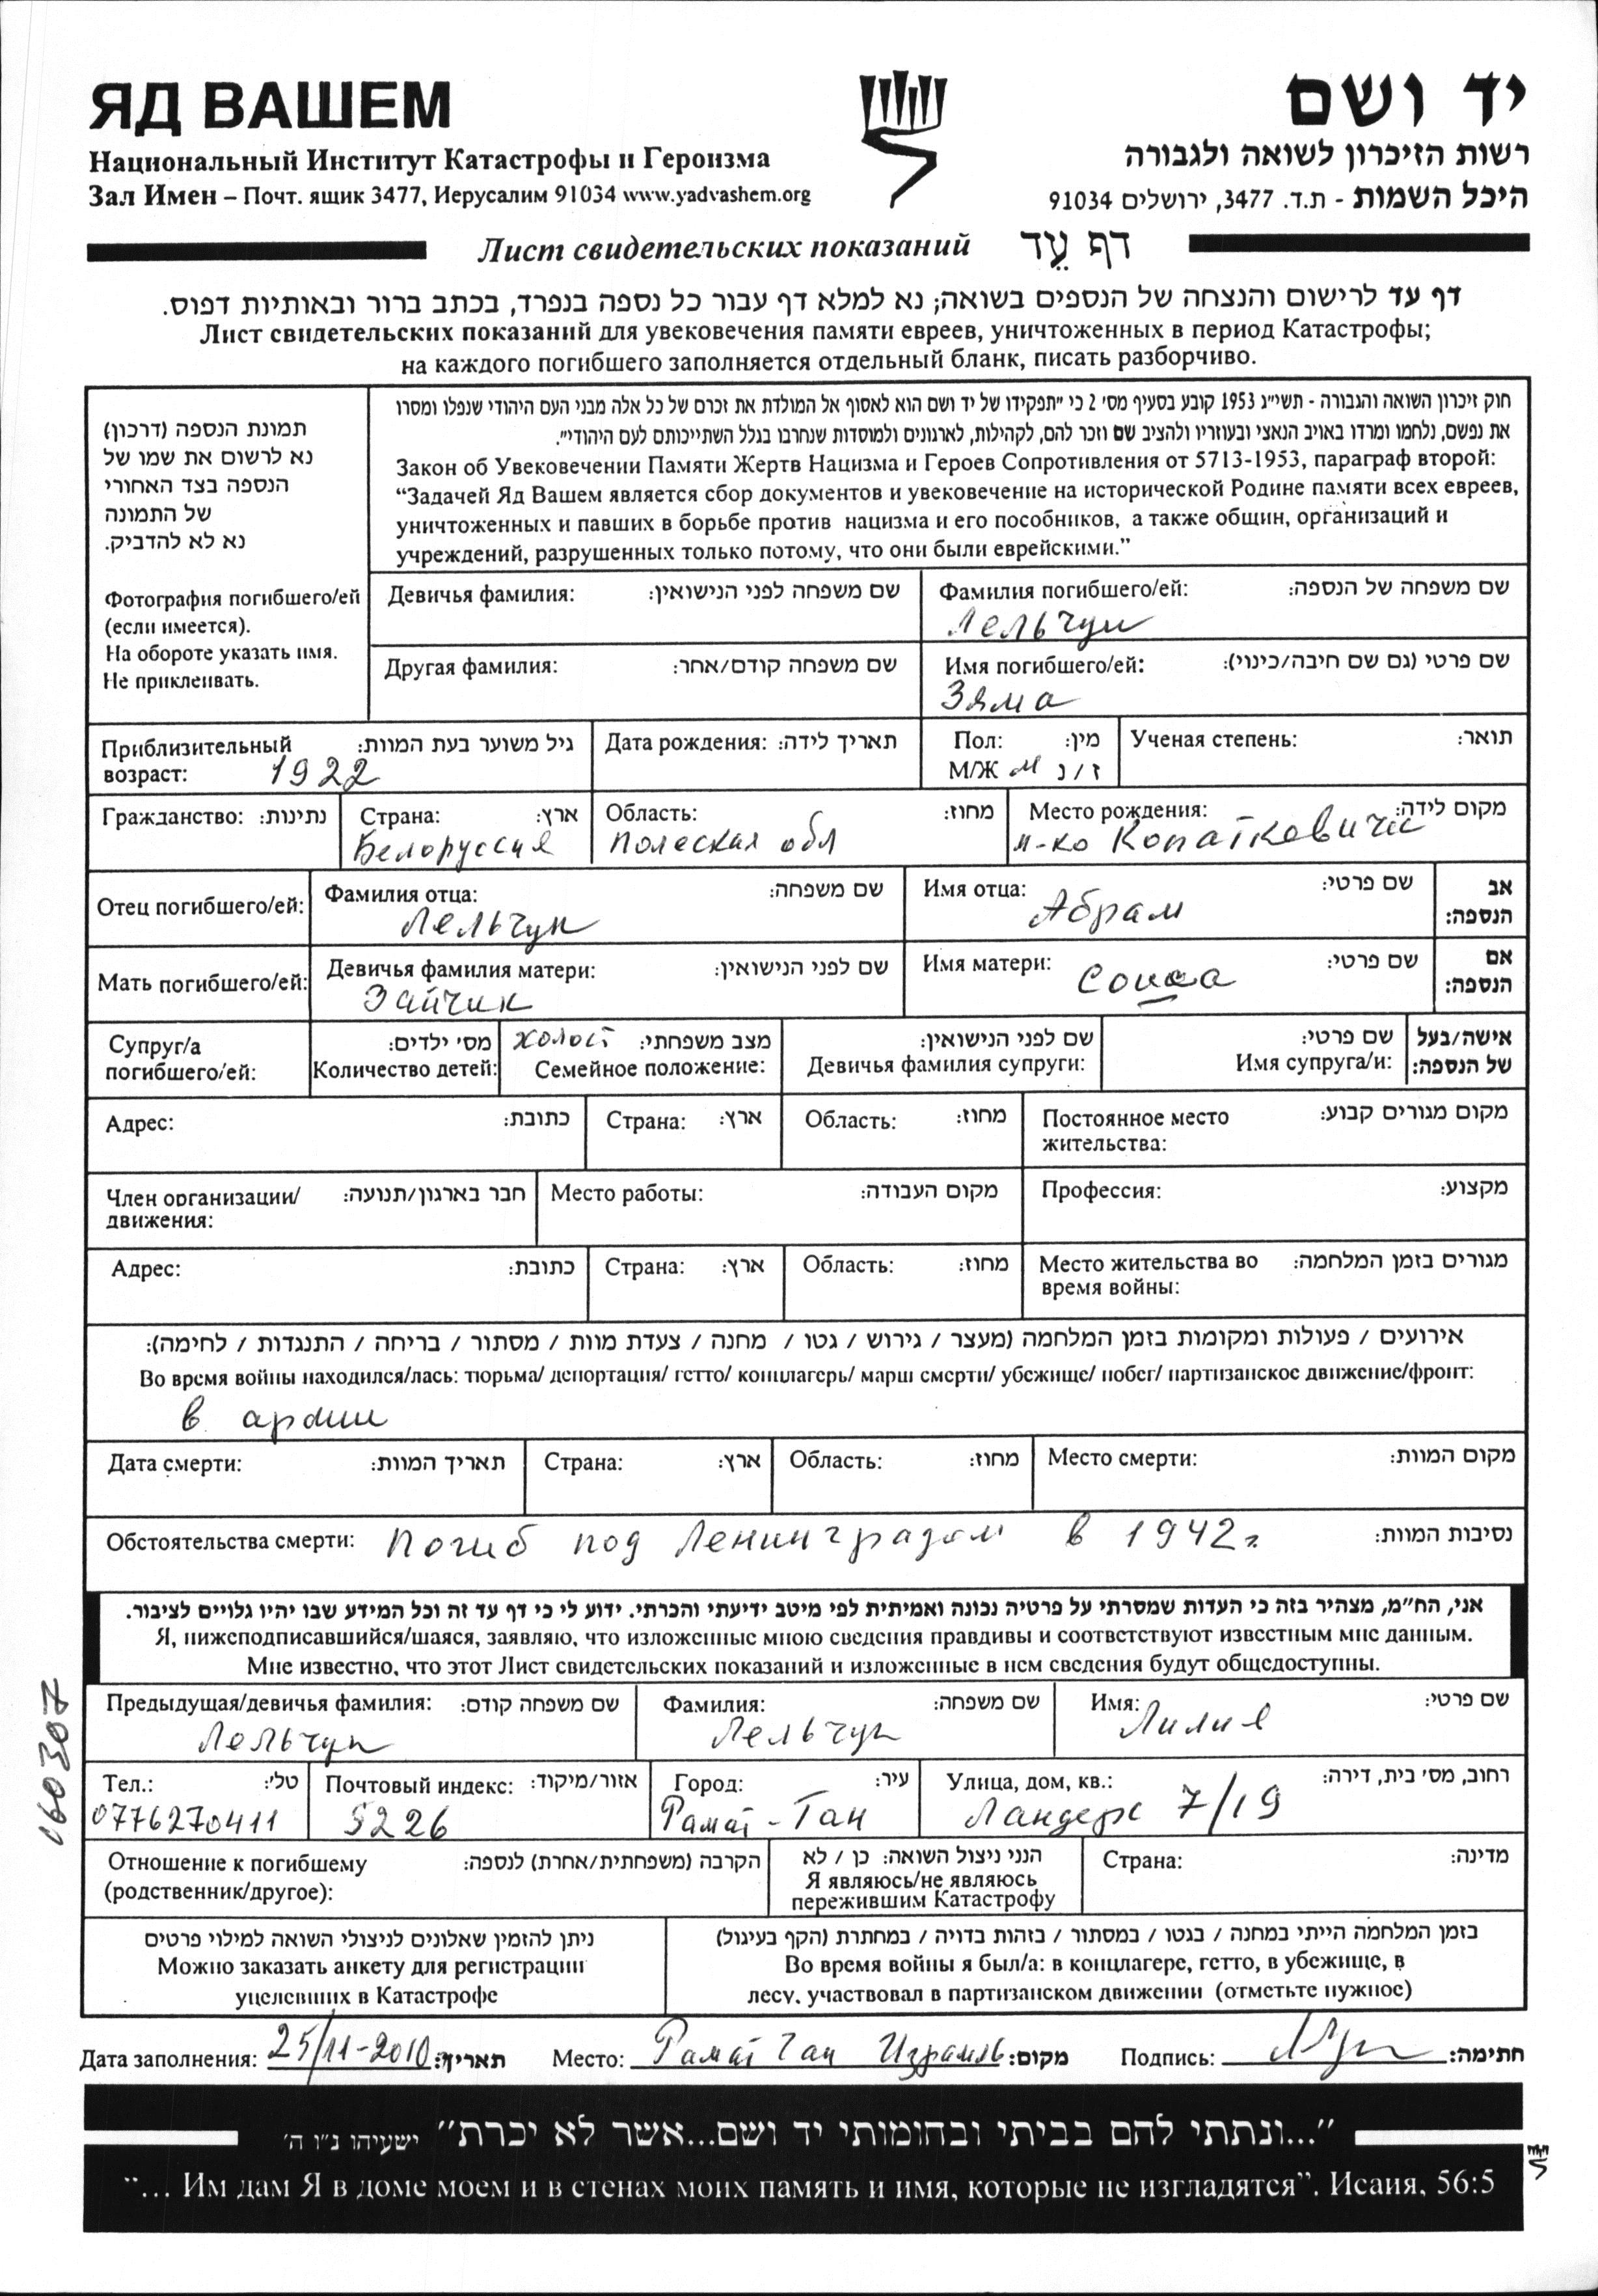 ЯД ВАШЕМ
יד ושם
Национальный Институт Катастрофы и Героизма
רשות הזיכרון לשואה ולגבורה
Зал Имен – Почт. ящик 3477, Иерусалим 91034 www.yadvashem.org
היכל השמות - ת.ד. 3477, ירושלים 91034
Лист свидетельских показаний דף עֵד
דף עד לרישום והנצחה של הנספים בשואה; נא למלא דף עבור כל נספה בנפרד, בכתב ברור ובאותיות דפוס.
Лист свидетельских показаний для увековечения памяти евреев, уничтоженных в период Катастрофы;
на каждого погибшего заполняется отдельный бланк, писать разборчиво.
תמונת הנספה (דרכון)
נא לרשום את שמו של
הנספה בצד האחורי
של התמונה
נא לא להדביק.
Фотография погибшего/ей
(если имеется).
На обороте указать имя.
Не приклеивать.
חוק זיכרון השואה והגבורה - תשי״ג 1953 קובע בסעיף מס׳ 2 כי ״תפקידו של יד ושם הוא לאסוף אל המולדת את זכרם של כל אלה מבני העם היהודי שנפלו ומסרו
את נפשם, נלחמו ומרדו באויב הנאצי ובעוזריו ולהציב שם וזכר להם, לקהילות, לארגונים ולמוסדות שנחרבו בגלל השתייכותם לעם היהודי״.
Закон об Увековечении Памяти Жертв Нацизма и Героев Сопротивления от 5713-1953, параграф второй:
“Задачей Яд Вашем является сбор документов и увековечение на исторической Родине памяти всех евреев,
уничтоженных и павших в борьбе против нацизма и его пособников, а также общин, организаций и
учреждений, разрушенных только потому, что они были еврейскими.”
Девичья фамилия: שם משפחה לפני הנישואין:
Фамилия погибшего/ей: שם משפחה של הנספה:
Лельчук
Другая фамилия: שם משפחה קודם/אחר:
Имя погибшего/ей: שם פרטי (גם שם חיבה/כינוי):
Зяма
Приблизительный возраст: גיל משוער בעת המוות: 1922
Дата рождения: תאריך לידה:
Пол: מין:
М/Ж м ז / נ
Ученая степень: תואר:
Гражданство: נתינות:
Страна: ארץ:
Белоруссия
Область: מחוז:
Полеская обл
Место рождения: מקום לידה:
м-ко Копаткевичи
Отец погибшего/ей:
Фамилия отца: שם משפחה:
Лельчук
Имя отца: שם פרטי:
Абрам
אב הנספה:
Мать погибшего/ей:
Девичья фамилия матери: שם לפני הנישואין:
Зайчик
Имя матери: שם פרטי:
אם הנספה:
Супруг/а погибшего/ей:
מס׳ ילדים:
Количество детей:
холост מצב משפחתי:
Семейное положение:
שם לפני הנישואין:
Девичья фамилия супруги:
שם פרטי:
Имя супруга/и:
אישה/בעל של הנספה:
Адрес: כתובת:
Страна: ארץ:
Область: מחוז:
Постоянное место жительства: מקום מגורים קבוע:
Член организации/движения: חבר בארגון/תנועה:
Место работы: מקום העבודה:
Профессия: מקצוע:
Адрес: כתובת:
Страна: ארץ:
Область: מחוז:
Место жительства во время войны: מגורים בזמן המלחמה:
אירועים / פעולות ומקומות בזמן המלחמה (מעצר / גירוש / גטו / מחנה / צעדת מוות / מסתור / בריחה / התנגדות / לחימה):
Во время войны находился/лась: тюрьма/ депортация/ гетто/ концлагерь/ марш смерти/ убежище/ побег/ партизанское движение/фронт:
в армии
Дата смерти: תאריך המוות:
Страна: ארץ:
Область: מחוז:
Место смерти: מקום המוות:
Обстоятельства смерти: Погиб под Ленинградом в 1942г נסיבות המוות:
אני, הח״מ, מצהיר בזה כי העדות שמסרתי על פרטיה נכונה ואמיתית לפי מיטב ידיעתי והכרתי. ידוע לי כי דף עד זה וכל המידע שבו יהיו גלויים לציבור.
Я, нижеподписавшийся/шаяся, заявляю, что изложенные мною сведения правдивы и соответствуют известным мне данным.
Мне известно, что этот Лист свидетельских показаний и изложенные в нем сведения будут общедоступны.
Предыдущая/девичья фамилия: שם משפחה קודם:
Лельчук
Фамилия: שם משפחה:
Лельчук
Имя: שם פרטי:
Лилия
Тел.: טל׳:
0776270411
Почтовый индекс: אזור/מיקוד:
5226
Город: עיר:
Рамат-Ган
Улица, дом, кв.: רחוב, מס׳ בית, דירה:
Ландерс 7/19
Отношение к погибшему (родственник/другое): הקרבה (משפחתית/אחרת) לנספה:
הנני ניצול השואה: כן / לא
Я являюсь/не являюсь
пережившим Катастрофу
Страна: מדינה:
ניתן להזמין שאלונים לניצולי השואה למילוי פרטים
Можно заказать анкету для регистрации
уцелевших в Катастрофе
בזמן המלחמה הייתי במחנה / בגטו / במסתור / בזהות בדויה / במחתרת (הקף בעיגול)
Во время войны я был/а: в концлагере, гетто, в убежище, в
лесу, участвовал в партизанском движении (отметьте нужное)
Дата заполнения: 25/11-2010 תאריך: Место: Рамат Ган Израиль מקום: Подпись: חתימה:
״...ונתתי להם בביתי ובחומותי יד ושם...אשר לא יכרת״ ישעיהו נ״ו ה׳
“... Им дам Я в доме моем и в стенах моих память и имя, которые не изгладятся”. Исаия, 56:5
060307